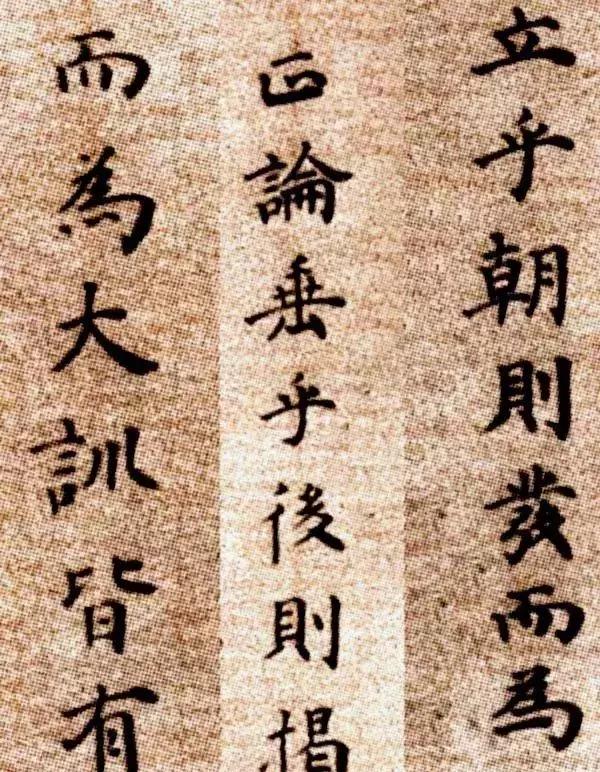 立乎朝則發而為
正論垂乎後則揭
而為大訓皆有